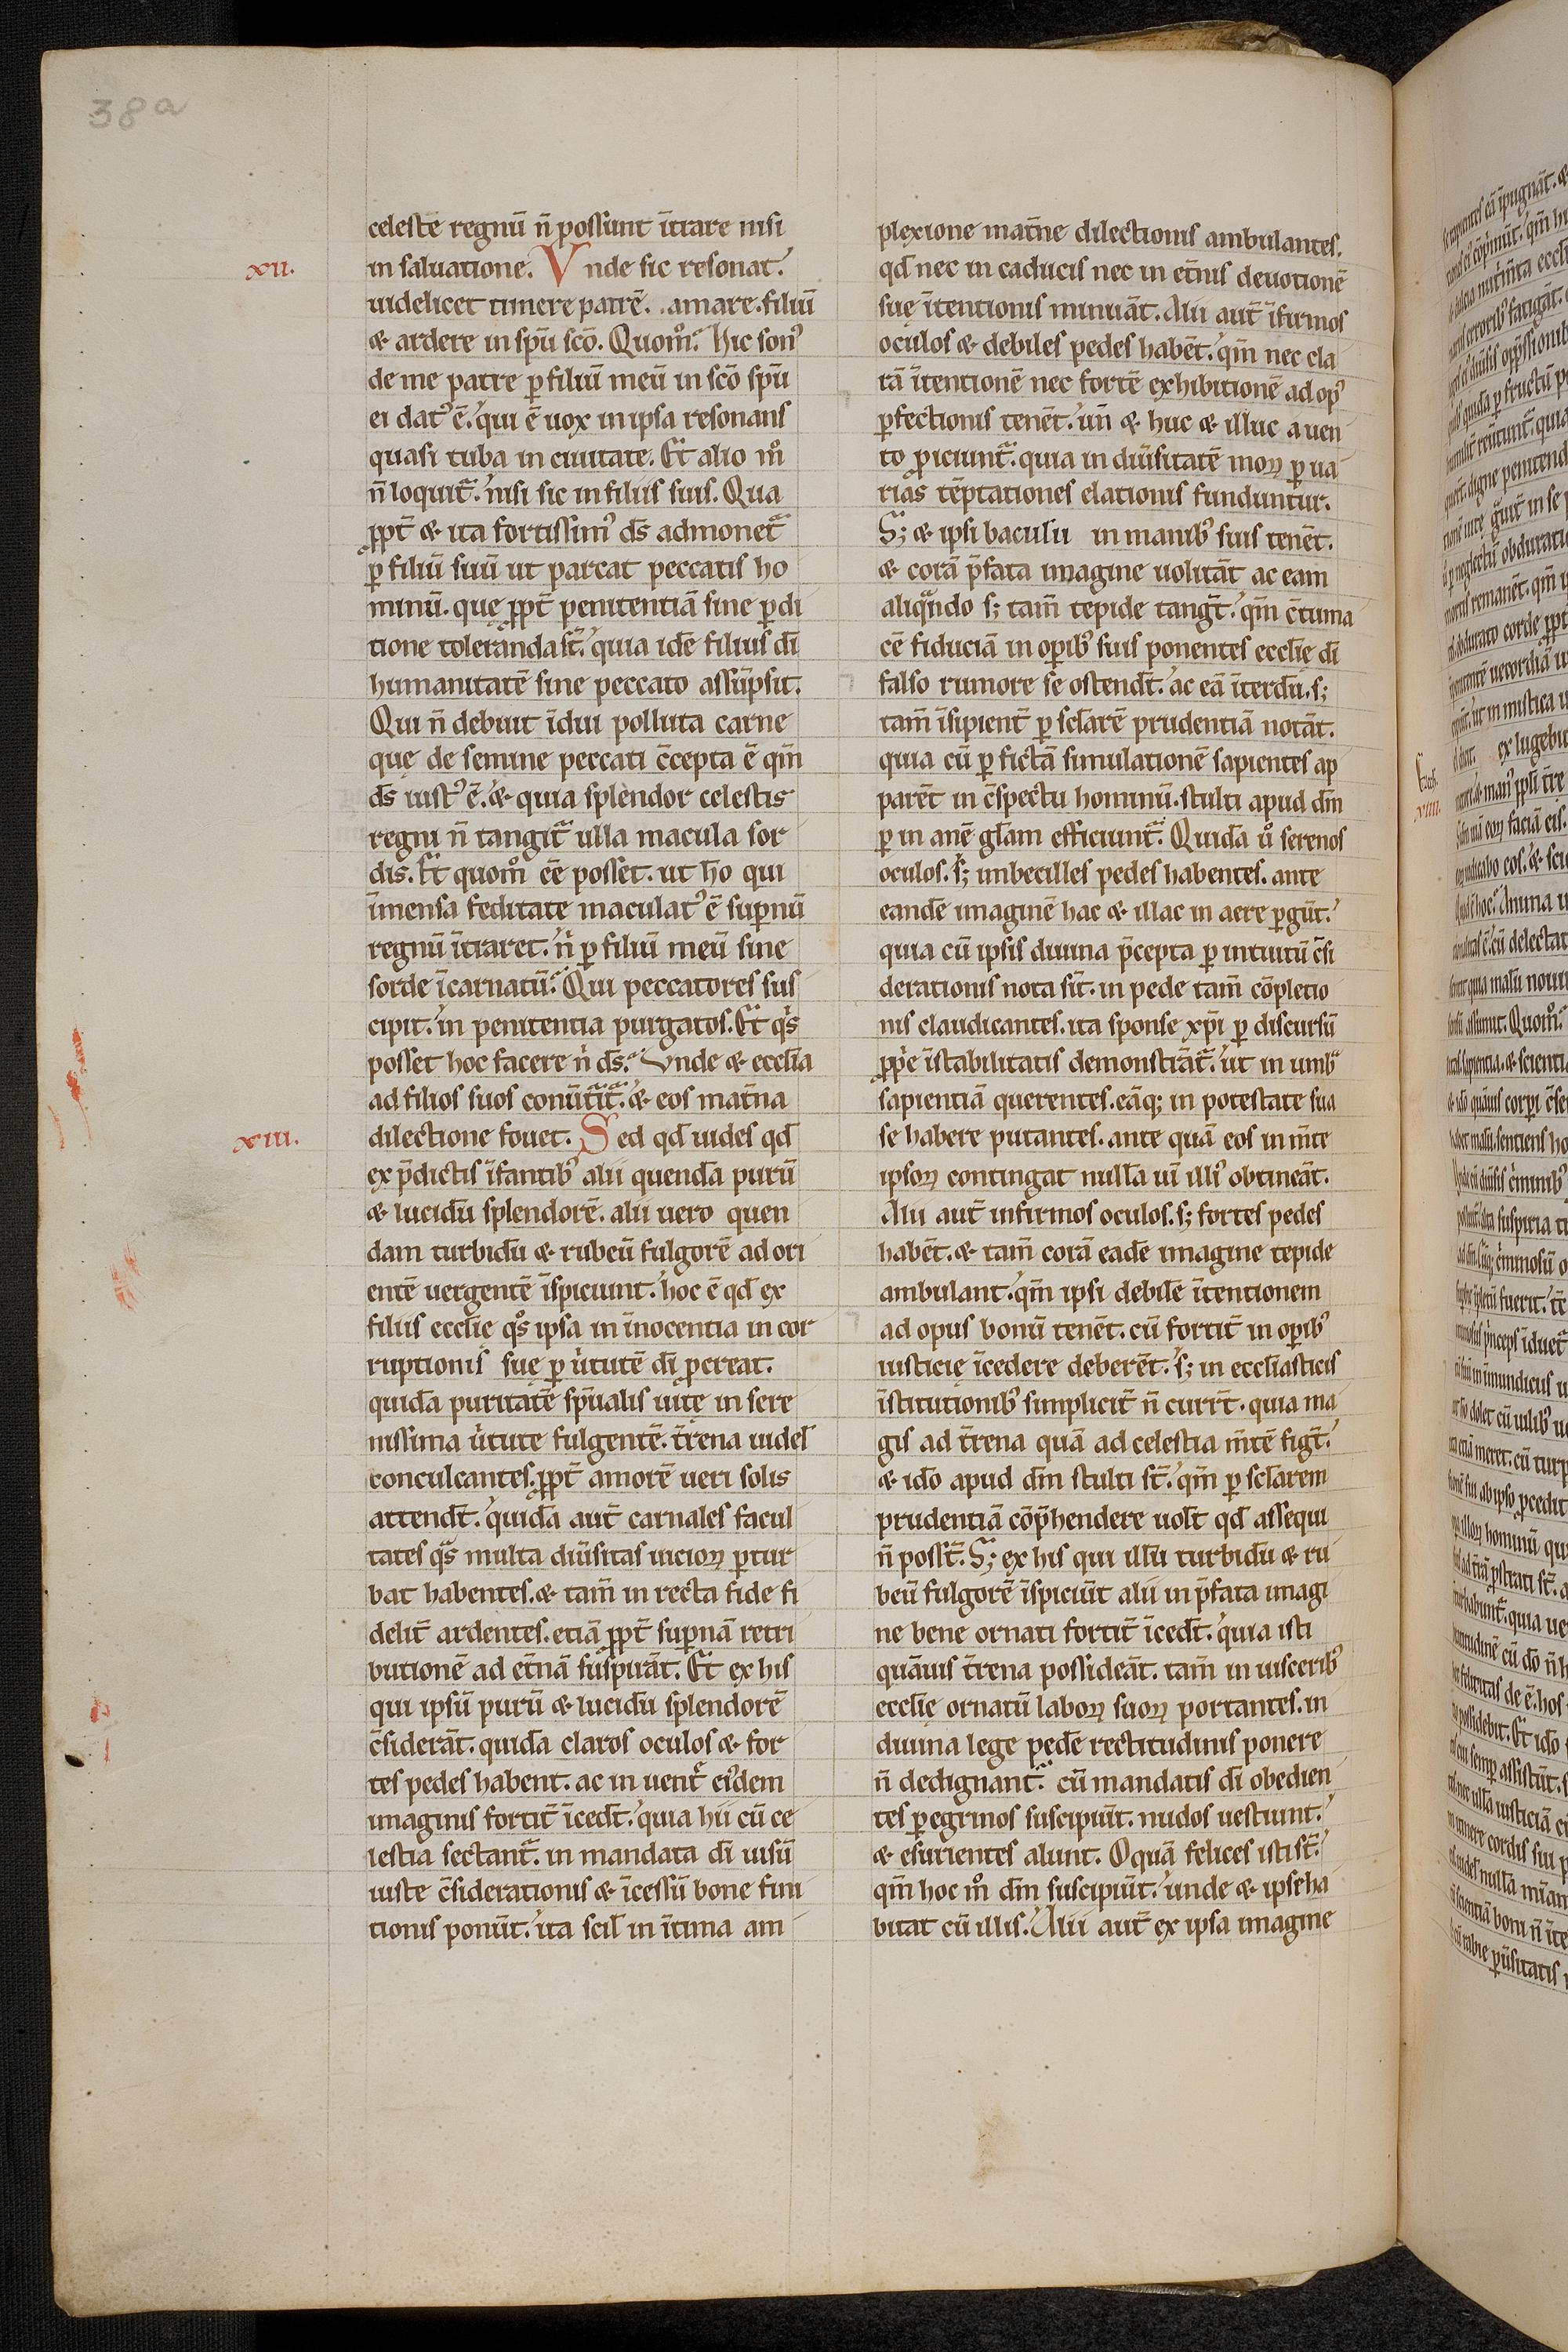 38a
celestē regnū n̄ possunt īt̄rare nisi
xii.
in saluatione. Vnde sic resonat.
uidelicet timere patrē. amare filiū
& ardere in sp̄u sc̄o. Quom̊. Hic son⁹
de me patre ꝑ filiū meū in sc̄o sp̄u
ei dat⁹ ē. qui ē uox in ipsa resonans
quasi tuba in ciuitate. Et alio m̊
n̄ loquit̃. nisi sic in filiis suis. Qua
ꝓpt̄ & ita fortissim⁹ ds̄ admonet̃
ꝑ filiū suū ut parcat peccatis ho
minū. quę ꝓpt̄ penitentiā sine ꝑdi
tione toleranda st̄. quia idē filius dī
humanitatē sine peccato assūpsit.
Qui n̄ debuit īdui polluta carne
quę de semine peccati c̄cepta ē qm̄
ds̄ iust⁹ ē. & quia splendor celestis
regni n̄ tangit̃ ulla macula sor
dis. Et quom̊ ēe posset. ut ho qui
īmensa feditate maculat⁹ ē supnū
regnū īt̄raret. n̍ ꝑ filiū meū sine
sorde īcarnatū. Qui peccatores sus
cipit. in penitentia purgatos. Et qi̍s
posset hoc facere n̍ ds̄. Vnde & eccl̄ia
ad filios suos conūtit̃. & eos mat̄na
xiii.
dilectione fouet. Sed qd̄ uides qd̄
ex p̄dictis īfantib⁹ alii quendā purū
& lucidū splendorē. alii uero quen
dam turbidū & rubeū fulgorē ad ori
entē uergentē īspiciunt. hoc ē qd̄ ex
filiis eccl̄ie qͦs ipsa in īnocentia in cor
ruptionis suę ꝑ u̍tutē dī ꝓcreat.
quidā puritatē sp̄ualis uitę in sere
nissima u̍tute fulgentē. t̄rena uidel̄
conculcantes. ꝓpt̄ amorē ueri solis
attendt̄. quidā aut̄ carnales facul
tates qᵃs multa diūsitas uicioꝝ ꝑtur
bat habentes. & tam̄ in recta fide fi
delit̄ ardentes. etiā ꝓpt̄ supnā retri
butionē ad et̄nā suspirāt. Et ex his
qui ipsū purū & lucidū splendorē
c̄siderāt. quidā claros oculos & for
tes pedes habent. ac in uent̃ ei⁹dem
imaginis fortit̄ īcedt̄. quia hii cū ce
lestia sectant̃. in mandata dī uisū
iuste c̄siderationis & īcessū bone fini
tionis ponūt. ita scil̄ in ītima am
plexione mat̄ne dilectionis ambulantes.
qd̄ nec in caducis nec in et̄nis deuotionē
suę ītentionis minuāt. Alii aut̄ īfirmos
oculos & debiles pedes habēt. qm̄ nec cla
rā ītentionē nec fortē exhibitionē ad op⁹
ꝑfectionis tenēt. un̄ & huc & illuc a uen
to ꝓiciunt̃. quia in diūsitatē moꝝ ꝑ ua
rias tēptationes elationis funduntur.
Sꝫ & ipsi baculū in manib⁹ suis tenēt.
& corā p̄fata imagine uolitāt ac eam
aliqᵃndo sꝫ tam̄ tepide tangt̄. qm̄ c̄tuma
cē fiduciā in opib⁹ suis ponentes eccl̄ie dī
falso rumore se ostendt̄. ac eā īterdū. sꝫ
tam̄ īsipient̄ ꝑ sclarē prudentiā notāt.
quia cū ꝑ fictā simulationē sapientes ap
parēt in c̄spectu hominū. stulti apud dm̄
ꝑ in anē glam̄ efficiunt̃. Quidā u̍o serenos
oculos. sꝫ imbecilles pedes habentes. ante
eandē imaginē hac & illac in aere ꝑgūt.
quia cū ipsis diuina p̄cepta ꝑ intuitū c̄si
derationis nota sīt. in pede tam̄ cōpletio
nis claudicantes. ita sponse xp̄i ꝑ discursū
ꝓp̍e īstabilitatis demonstrāt̃. ut in umbᵃ
sapientiā querentes. eāqꝫ in potestate sua
se habere putantes. ante quā eos in m̄te
ipsoꝝ contingat nullā uī illi⁹ obtineāt.
Alii aut̄ infirmos oculos. sꝫ fortes pedes
habēt. & tam̄ corā eadē imagine tepide
ambulant. qm̄ ipsi debilē ītentionem
ad opus bonū tenēt. cū fortit̄ in opib⁹
iusticię īcedere deberēt. sꝫ in eccl̄iasticis
īstitutionib⁹ simplicit̄ n̄ currt̄. quia ma
gis ad t̄rena quā ad celestia m̄tē figt̄.
& ido apud dm̄ stulti st̄. qm̄ ꝑ sclarem
prudentiā cōp̄hendere uolt̄ qd̄ assequi
n̄ posst̄. Sꝫ ex his qui illū turbidū & ru
beū fulgorē īspiciūt alii in p̄fata imagi
ne bene ornati fortit̄ īcedt̄. quia isti
quāuis t̄rena possideāt. tam̄ in uiscerib⁹
eccl̄ię ornatū laboꝝ suoꝝ portantes. in
diuina lege pedē rectitudinis ponere
n̄ dedignant̃. cū mandatis dī obedien
tes ꝑegrinos suscipiūt. nudos uestiunt.
& esurientes alunt. O quā felices isti st̄.
qm̄ hoc m̊ dm̄ suscipiūt. unde & ipse ha
bitat cū illis. Alii aut̄ ex ipsa imagine